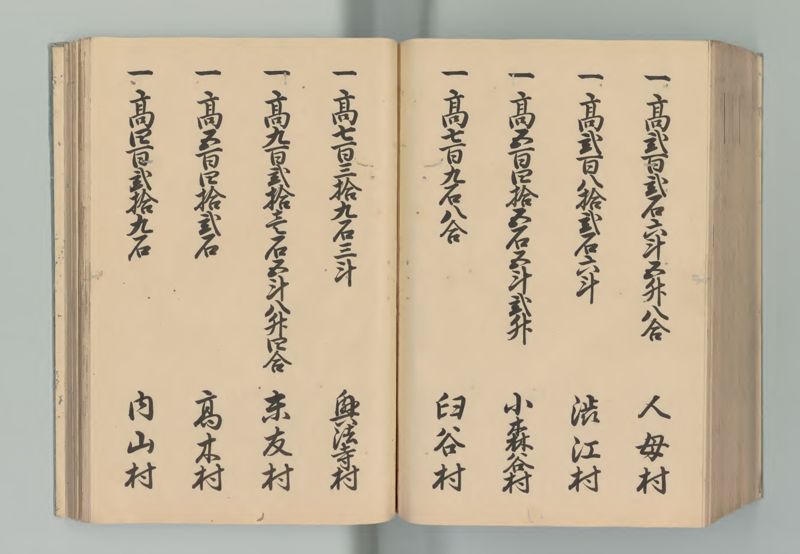 一高弐百弐石六斗五升八合 人母村
一高弐百八拾弐石六斗 渋江村
一高五百四拾五石五斗弐升 小森谷村
一高七百九石八合 臼谷村
一高七百三拾九石三斗 興法寺村
一高九百弐拾壱石五斗八升四合 末友村
一高五百四拾弐石 高木村
一高四百弐拾九石 内山村